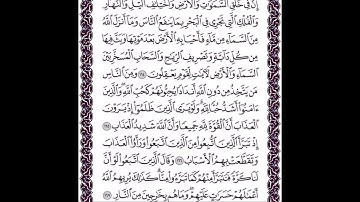 إِنَّ فِي خَلْقِ ٱلسَّمَٰوَٰتِ وَٱلْأَرْضِ وَٱخْتِلَٰفِ ٱلَّيْلِ وَٱلنَّهَارِ
وَٱلْفُلْكِ ٱلَّتِي تَجْرِي فِي ٱلْبَحْرِ بِمَا يَنفَعُ ٱلنَّاسَ وَمَآ أَنزَلَ ٱللَّهُ
مِنَ ٱلسَّمَآءِ مِن مَّآءٍ فَأَحْيَا بِهِ ٱلْأَرْضَ بَعْدَ مَوْتِهَا وَبَثَّ فِيهَا
مِن كُلِّ دَآبَّةٍ وَتَصْرِيفِ ٱلرِّيَٰحِ وَٱلسَّحَابِ ٱلْمُسَخَّرِ بَيْنَ
ٱلسَّمَآءِ وَٱلْأَرْضِ لَءَايَٰتٍ لِّقَوْمٍ يَعْقِلُونَ ١٦٤ وَمِنَ ٱلنَّاسِ
مَن يَتَّخِذُ مِن دُونِ ٱللَّهِ أَندَادًا يُحِبُّونَهُمْ كَحُبِّ ٱللَّهِ وَٱلَّذِينَ
ءَامَنُوٓا۟ أَشَدُّ حُبًّا لِّلَّهِ وَلَوْ يَرَى ٱلَّذِينَ ظَلَمُوٓا۟ إِذْ يَرَوْنَ
ٱلْعَذَابَ أَنَّ ٱلْقُوَّةَ لِلَّهِ جَمِيعًا وَأَنَّ ٱللَّهَ شَدِيدُ ٱلْعَذَابِ ١٦٥
إِذْ تَبَرَّأَ ٱلَّذِينَ ٱتُّبِعُوا۟ مِنَ ٱلَّذِينَ ٱتَّبَعُوا۟ وَرَأَوُا۟ ٱلْعَذَابَ
وَتَقَطَّعَتْ بِهِمُ ٱلْأَسْبَابُ ١٦٦ وَقَالَ ٱلَّذِينَ ٱتَّبَعُوا۟ لَوْ أَنَّ
لَنَا كَرَّةً فَنَتَبَرَّأَ مِنْهُمْ كَمَا تَبَرَّءُوا۟ مِنَّا كَذَٰلِكَ يُرِيهِمُ ٱللَّهُ
أَعْمَٰلَهُمْ حَسَرَٰتٍ عَلَيْهِمْ وَمَا هُم بِخَٰرِجِينَ مِنَ ٱلنَّارِ ١٦٧